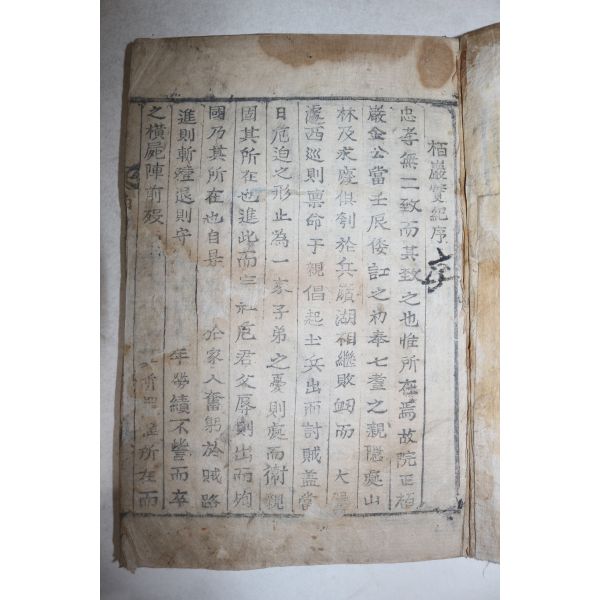 栢巖實紀序
忠孝無二致而其致之也惟所在焉故院正栢
巖金公當壬辰倭訌之初奉七耋之親隱處山
林及永慶俱刳於兵嶺湖相繼敗衂而 大駕
遽西巡則稟命于親倡起士兵出而討賊盖當
日危迫之形止為一家子弟之憂則處而衛親
固其所在也進此而宗社危君父辱則出而殉
國乃其所在也自是 於家人奮躬於賊路
進則斬殪退則守 年勞績不訾而卒
之橫屍陣前殁 所在而